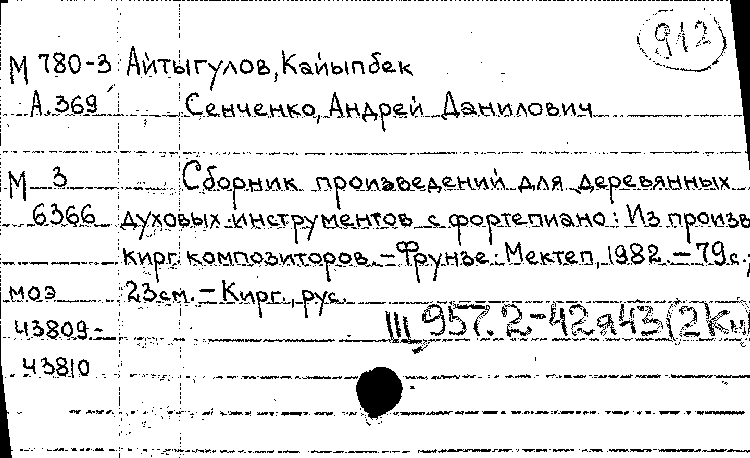 912
М 780-3 Айтыгулов, Кайыпбек
А.369 Сенченко, Андрей Данилович
М 3 Сборник произведений для деревянных
6366 духовых инструментов с фортепиано: Из произв
кирг. композиторов. - Фрунзе: Мектеп, 1982. - 79с.;
моэ 23см. - Кирг., рус.
43809- III 957.2-42я43(2Ки)
43810